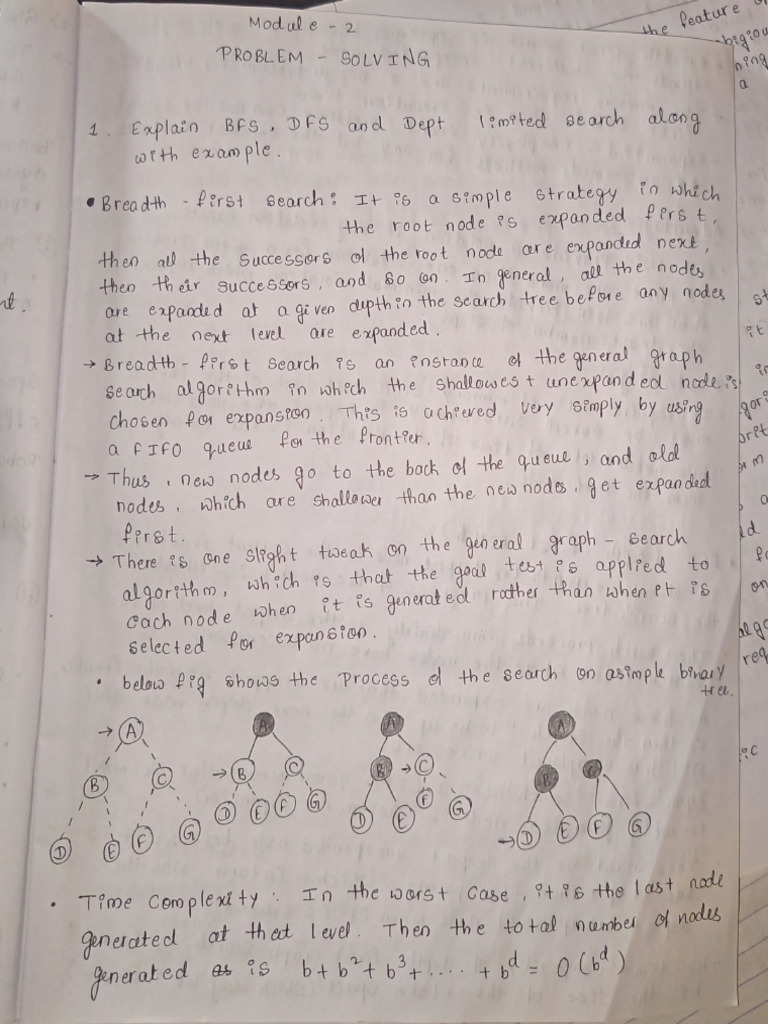 Module - 2
PROBLEM - SOLVING
1. Explain BFS, DFS and Dept limited search along
with example.
• Breadth - first search : It is a simple strategy in which
the root node is expanded first,
then all the successors of the root node are expanded next,
then their successors, and so on. In general, all the nodes
are expanded at a given depth in the search tree before any nodes
at the next level are expanded.
→ Breadth - first search is an instance of the general graph
search algorithm in which the shallowest unexpanded node is
chosen for expansion. This is achieved very simply by using
a FIFO queue for the frontier.
→ Thus, new nodes go to the back of the queue, and old
nodes, which are shallower than the new nodes, get expanded
first.
→ There is one slight tweak on the general graph - search
algorithm, which is that the goal test is applied to
each node when it is generated rather than when it is
selected for expansion.
• below fig shows the Process of the search on a simple binary
tree.
→ A A A A
B C → B C B → C B C
D E F G D E F G D E F G → D E F G
• Time Complexity : In the worst case, it is the last node
generated at that level. Then the total number of nodes
generated is b + b² + b³ + .... + b^d = O(b^d)
the feature